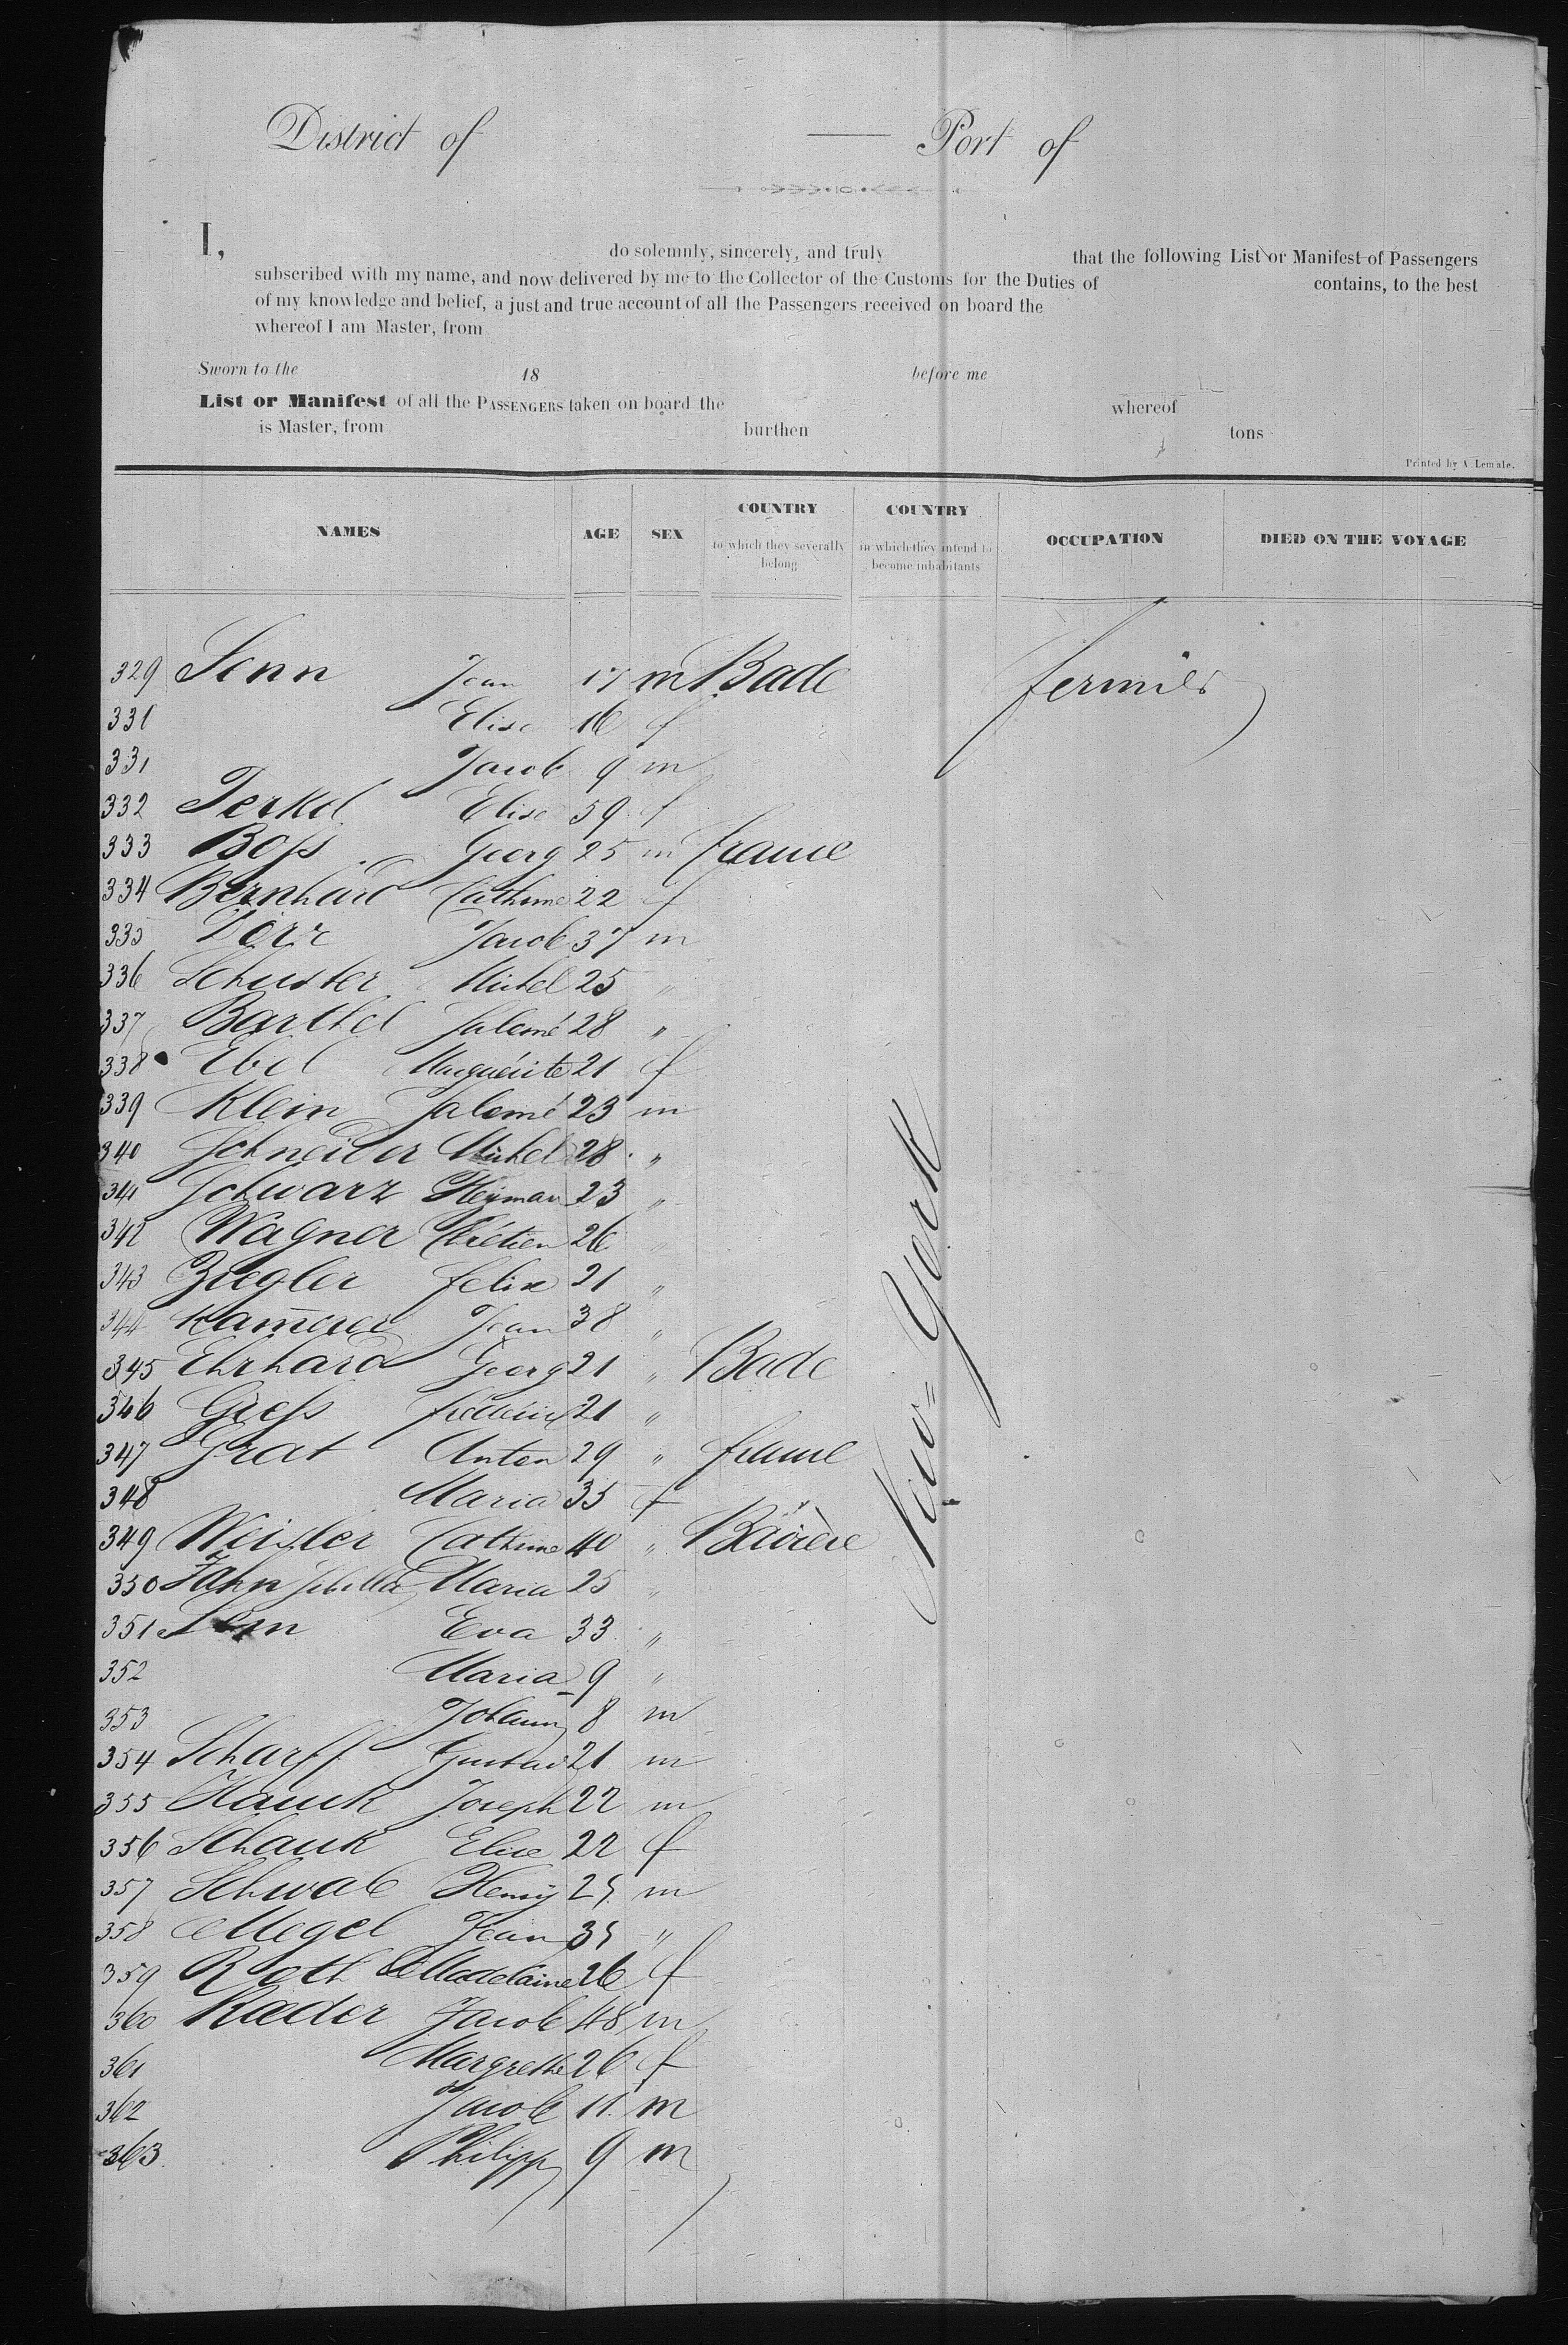 District of — Port of
I, do solemnly, sincerely, and truly that the following List or Manifest of Passengers
subscribed with my name, and now delivered by me to the Collector of the Customs for the Duties of contains, to the best
of my knowledge and belief, a just and true account of all the Passengers received on board the
whereof I am Master, from
Sworn to the 18 before me
List or Manifest of all the PASSENGERS taken on board the whereof
is Master, from burthen tons
Printed by A. Lemale.
NAMES AGE SEX COUNTRY to which they severally belong COUNTRY in which they intend to become inhabitants OCCUPATION DIED ON THE VOYAGE
329 Senn Jean 17 m Bade fermier
331 Elise 16 f
331 Jacob 9 m
332 Elise 59 f
333 Boss Georg 25 m france
334 Bernhard Cathrine 22 f
335 Dörr Jacob 37 m
336 Schuster Michel 25 "
337 Barthel Salomé 28 "
338 Ebel Marguérite 21 f
339 Klein Salomé 23 m
340 Schneider Michel 28 "
341 Schwarz Heyman 23 "
342 Wagner Chrétien 26 "
343 Ziegler felix 21 "
344 Kam̄erer Jean 38 "
345 Ehrhard Georg 21 " Bade
346 Giess frederic 21 "
347 Grat Anton 29 " france
348 Maria 35 f
349 Weisler Cathrine 40 " Bavière
350 Jahn Sibilla Maria 25 "
351 Eva 33 "
352 Maria 9 "
353 Johann 8 m
354 Scharff Gustav 21 m
355 Hauck Joseph 22 m
356 Schauk Elise 22 f
357 Schwab Henry 25 m
358 Megel Jean 35 "
359 Roth Madelaine 26 f
360 Rader Jacob 48 m
361 Margrethe 26 f
362 Jacob 11 m
363 Philipp 9 m
New=York